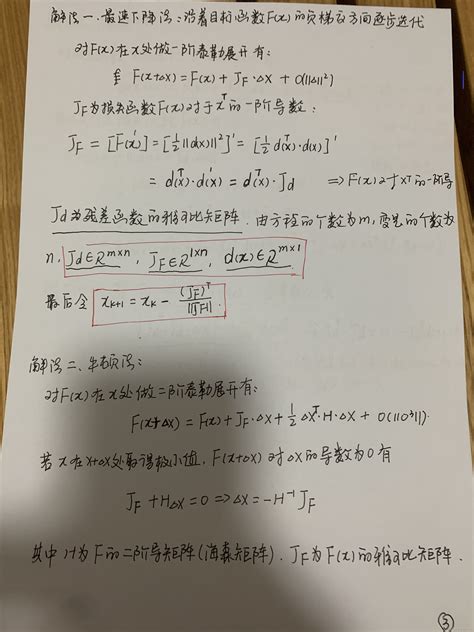 解法一、最速下降法：沿着目标函数F(x)的负梯度方向逐步迭代
对F(x)在x处做一阶泰勒展开有：
F(x+Δx) = F(x) + J_F·Δx + O(||Δ||²)
J_F为损失函数F(x)对于x^T的一阶导数：
J_F = [F(x)]' = [½||d(x)||²]' = [½ d(x)^T·d(x)]'
= d(x)^T·d(x)' = d(x)^T·J_d ⇒ F(x)对x^T的一阶导
J_d为残差函数的雅可比矩阵。由方程的个数为m,变量的个数为
n, J_d∈R^{m×n}, J_F∈R^{1×n}, d(x)∈R^{m×1}
最后令 x_{k+1} = x_k - (J_F)^T/||J_F||
解法二、牛顿法：
对F(x)在x处做二阶泰勒展开有：
F(x+Δx) = F(x) + J_F·Δx + ½ Δx^T·H·Δx + O(||O³||)
若x在x+Δx处取得极小值, F(x+Δx)对Δx的导数为0有
J_F + HΔx = 0 ⇒ Δx = -H⁻¹ J_F
其中H为F的二阶导矩阵(海森矩阵)、J_F为F(x)的雅可比矩阵.
③